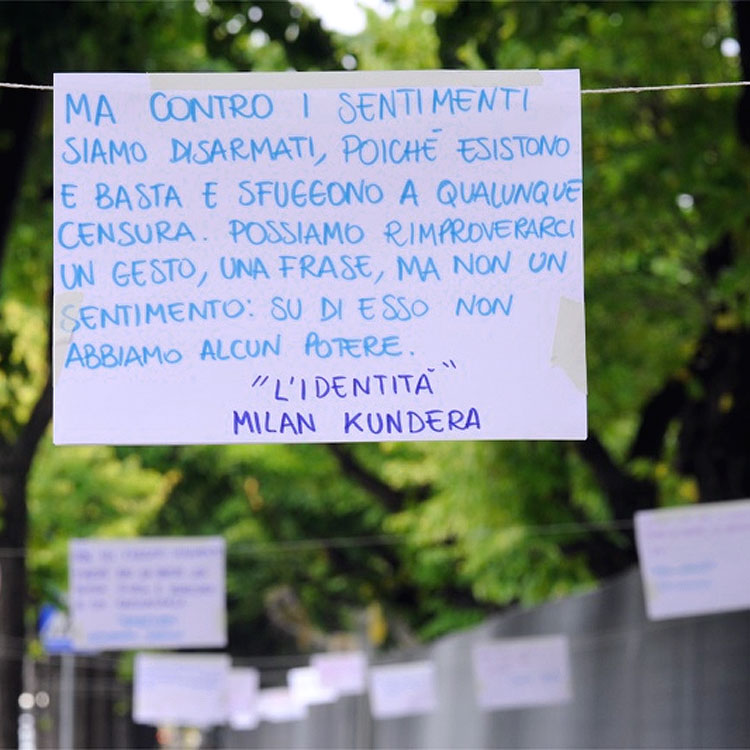 MA CONTRO I SENTIMENTI
SIAMO DISARMATI, POICHÉ ESISTONO
E BASTA E SFUGGONO A QUALUNQUE
CENSURA. POSSIAMO RIMPROVERARCI
UN GESTO, UNA FRASE, MA NON UN
SENTIMENTO: SU DI ESSO NON
ABBIAMO ALCUN POTERE.
"L'IDENTITÀ"
MILAN KUNDERA